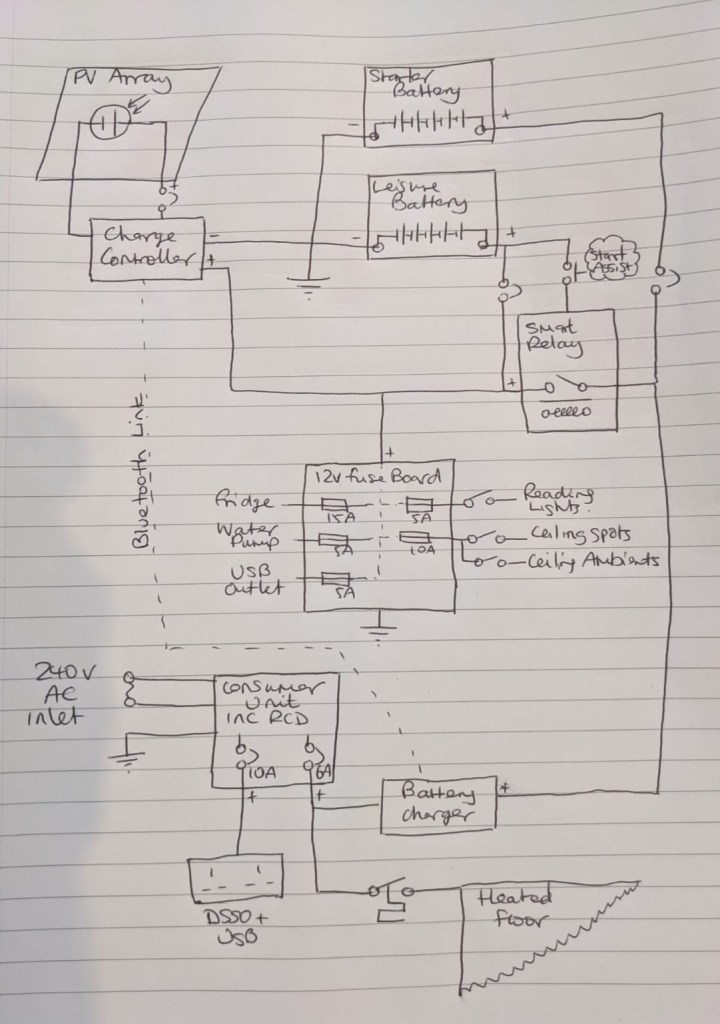 PV Array
Starter
Battery
-
+
Leisure
Battery
-
+
+
Charge
Controller
-
+
Start
Assist
Smart
Relay
+
Bluetooth Link
+
12v fuse Board
Fridge
15A
5A
Reading
Lights
Water
Pump
5A
10A
Ceiling Spots
Ceiling Ambients
USB
Outlet
5A
240v
AC
inlet
Consumer
Unit
INC RCD
10A
6A
+
+
Battery
charger
+
DSSO +
USB
Heated
floor